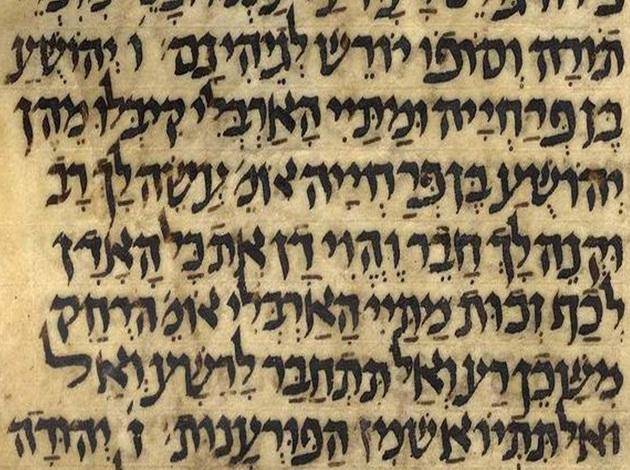 תורה וסופו יורש לגיהינם ו יהושע
בן פרחייה ומתיי הארבלי קיבלו מהן
יהושע בן פרחייה אומ' עשה לך רב
וקנה לך חבר והוי דן את כל האדן
לכף זכות מתיי הארבלי אומ' הרחק
משכן רע ואל תתחבר לרשע ואל
ואל תתיואש מן הפורענות ז יהודה